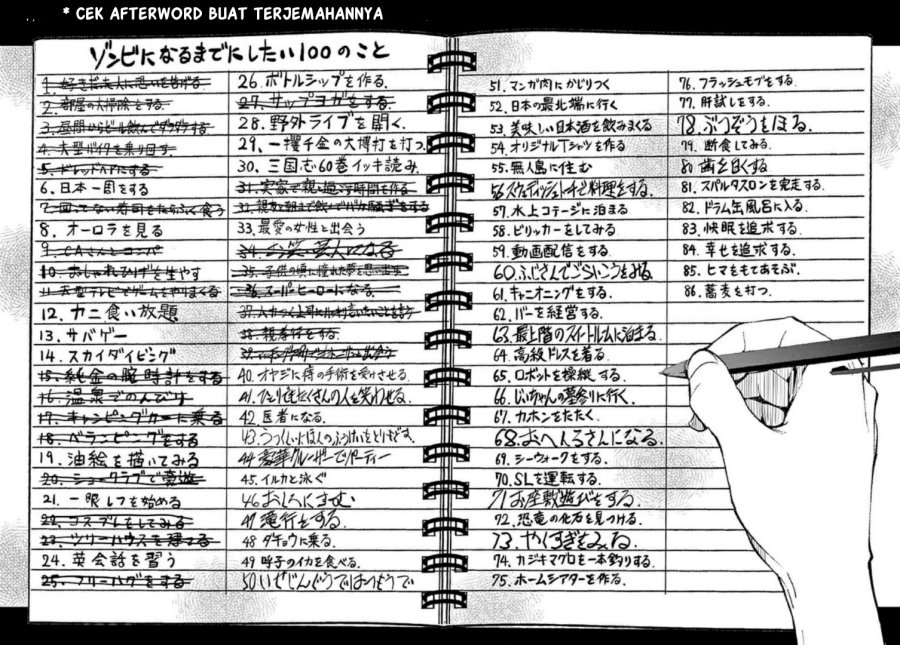 * CEK AFTERWORD BUAT TERJEMAHANNYA
ゾンビになるまでにしたい100のこと
1. 好きだった人に思いを告げる
2. 部屋の大掃除をする
3. 昼間からビール飲んでダラダラする
4. 大型バイクを乗り回す
5. ドレッドヘアにする
6. 日本一周をする
7. 回ってない寿司をたらふく食う
8. オーロラを見る
9. CAさんとコンパ
10. おしゃれひげを生やす
11. 大型テレビでゲームをやりまくる
12. カニ食い放題
13. サバゲー
14. スカイダイビング
15. 純金の腕時計をする
16. 温泉でのんびり
17. キャンピングカーに乗る
18. ベランピングをする
19. 油絵を描いてみる
20. ショークラブで豪遊
21. 一眼レフを始める
22. コスプレをしてみる
23. ツリーハウスを建てる
24. 英会話を習う
25. フリーハグをする
26. ボトルシップを作る
27. サップヨガをする
28. 野外ライブを開く.
29. 一攫千金の大博打を打つ
30. 三国志60巻イッキ読み
31. 実家で親と過ごす時間を作る
32. 親友と朝まで飲んでバカ騒ぎをする
33. 最愛の女性と出会う
34. お笑い芸人になる
35. 子供の頃に憧れた夢を思い出す
36. スーパーヒーローになる.
37. ムカつく上司に言いたいことを言う
38. 親孝行をする
39.
40. オヤジに痔の手術を受けさせる.
41. ひとりでも多くの人を笑わせる.
42. 医者になる.
43. うつくしいにほんのふうけいをとりもどす.
44. 豪華クルーザーでパーティー
45. イルカと泳ぐ
46. おしろにすむ
47. 滝行をする.
48. ダチョウに乗る.
49. 呼子のイカを食べる.
50. いせじんぐうではつもうで
51. マンガ肉にかじりつく
52. 日本の最北端に行く
53. 美味しい日本酒を飲みまくる
54. オリジナルTシャツを作る
55. 無人島に住む
56. スウェーディッシュトーチで料理をする.
57. 水上コテージに泊まる
58. ビリッカーをしてみる
59. 動画配信をする.
60. ふじさんでごらいこうをみる
61. キャニオニングをする.
62. バーを経営する.
63. 最上階のスイートルームに泊まる.
64. 高級ドレスを着る.
65. ロボットを操縦する.
66. じいちゃんの墓参りに行く.
67. カホンをたたく.
68. おへんろさんになる.
69. シーウォークをする.
70. SLを運転する.
71. お座敷遊びをする.
72. 恐竜の化石を見つける.
73. やくすぎをみる.
74. カジキマグロを一本釣りする.
75. ホームシアターを作る.
76. フラッシュモブをする.
77. 肝試しをする.
78. ぶつぞうをほる.
79. 断食してみる.
80. 歯を白くする
81. スパルタスロンを完走する.
82. ドラム缶風呂に入る.
83. 快眠を追求する.
84. 幸せを追求する.
85. ヒマをもてあそぶ.
86. 蕎麦を打つ.